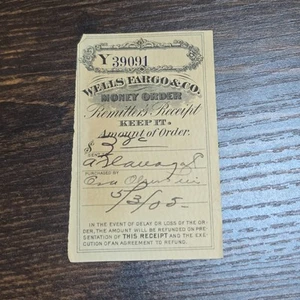 Y 39091
WELLS FARGO & CO.
MONEY ORDER
Remitter's Receipt
KEEP IT.
Amount of Order.
$ 3
PURCHASED BY
5/3/05
IN THE EVENT OF DELAY OR LOSS OF THE OR-
DER, THE AMOUNT WILL BE REFUNDED ON PRE-
SENTATION OF THIS RECEIPT AND THE EXE-
CUTION OF AN AGREEMENT TO REFUND.